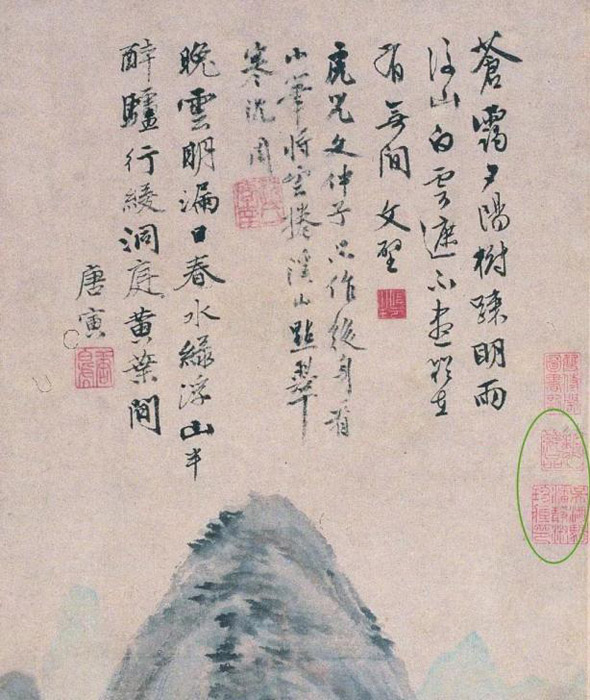 蒼靄夕陽樹踈明雨
後山白雲遮不盡在
有無間 文璧
虎兒文仲子只作後身看
小筆將雲捲溪山點翠
寒沈周
晚雲明漏日春水綠浮山半
醉驢行緩洞庭黃葉間
唐寅